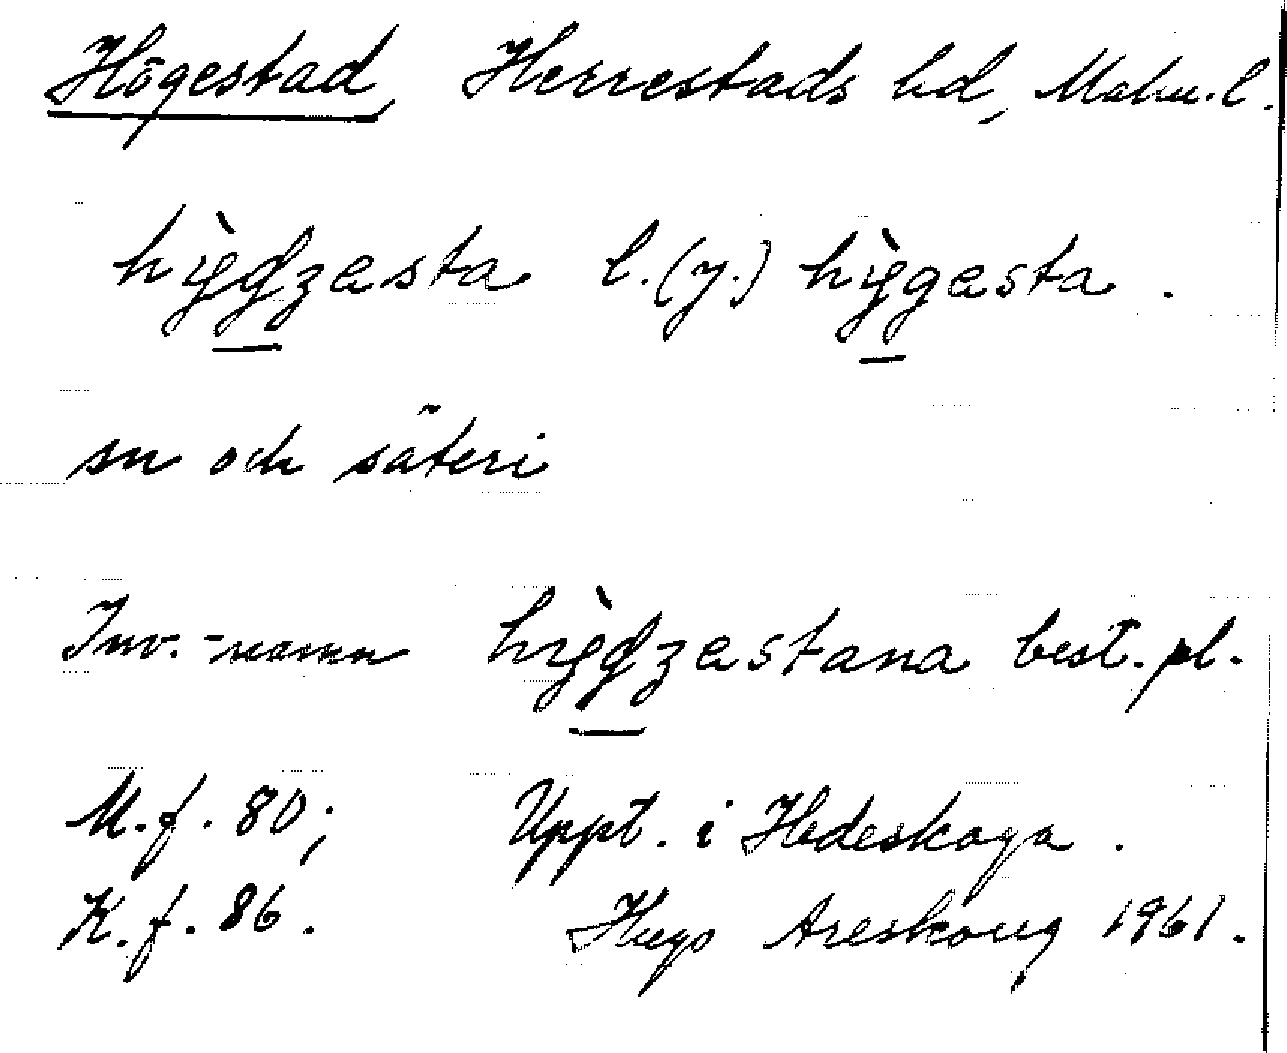 Högestad, Herrestads hd, Malm.l.
hỳgʒesta l.(y.) hỳgesta.
sn och säteri
Inv.-namn hỳgʒestana best. pl.
M.f. 80; Uppt. i Hedeskoga.
K.f. 86. Hugo Areskoug 1961.